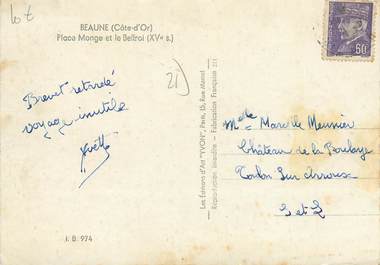 lot
BEAUNE (Côte-d'Or)
Place Monge et le Beffroi (XVe s.)
21)
Brevet retardé
voyage inutile
Yvette
I. B. 974
Les Editions d'Art "YVON", Paris, 15, Rue Martel
Reproduction interdite - Fabrication Française
50
Melle Marcelle Meunier
Château de la Boulaye
Toulon Sur Arroux
S et L